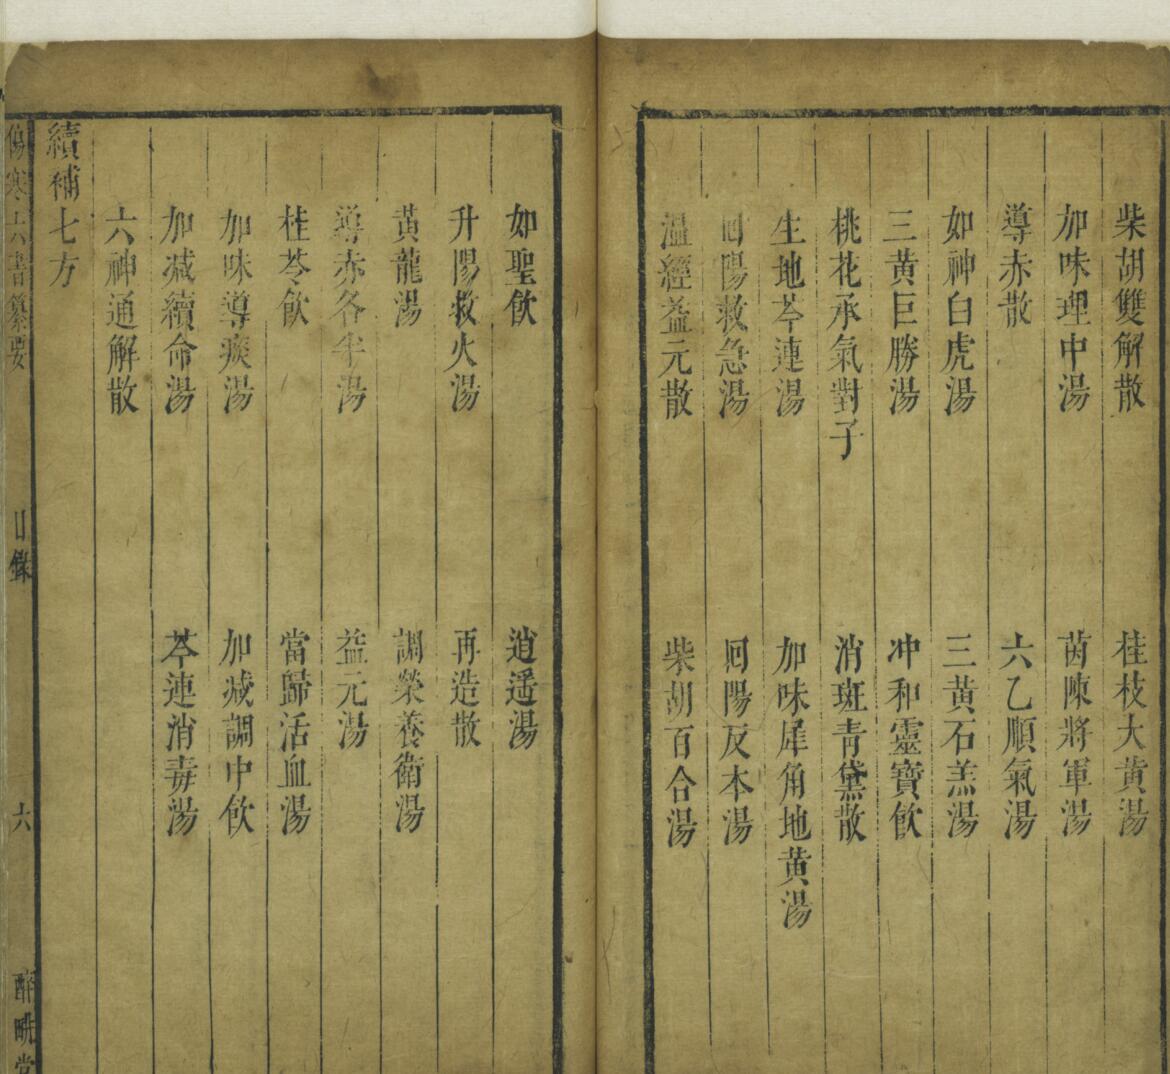 柴胡雙解散 桂枝大黄湯
加味理中湯 茵陳將軍湯
導赤散 六乙順氣湯
如神白虎湯 三黄石羔湯
三黄巨勝湯 冲和靈寶飲
桃花承氣對子 消斑青黛散
生地芩連湯 加味犀角地黄湯
回陽救急湯 回陽反本湯
溫經益元散 柴胡百合湯
如聖飲 逍遥湯
升陽救火湯 再造散
黄龍湯 調榮養衛湯
導赤各半湯 益元湯
桂苓飲 當歸活血湯
加味導痰湯 加减調中飲
加减續命湯 芩連消毒湯
六神通解散
續補七方
傷寒六書纂要 目錄 六 醉畊堂